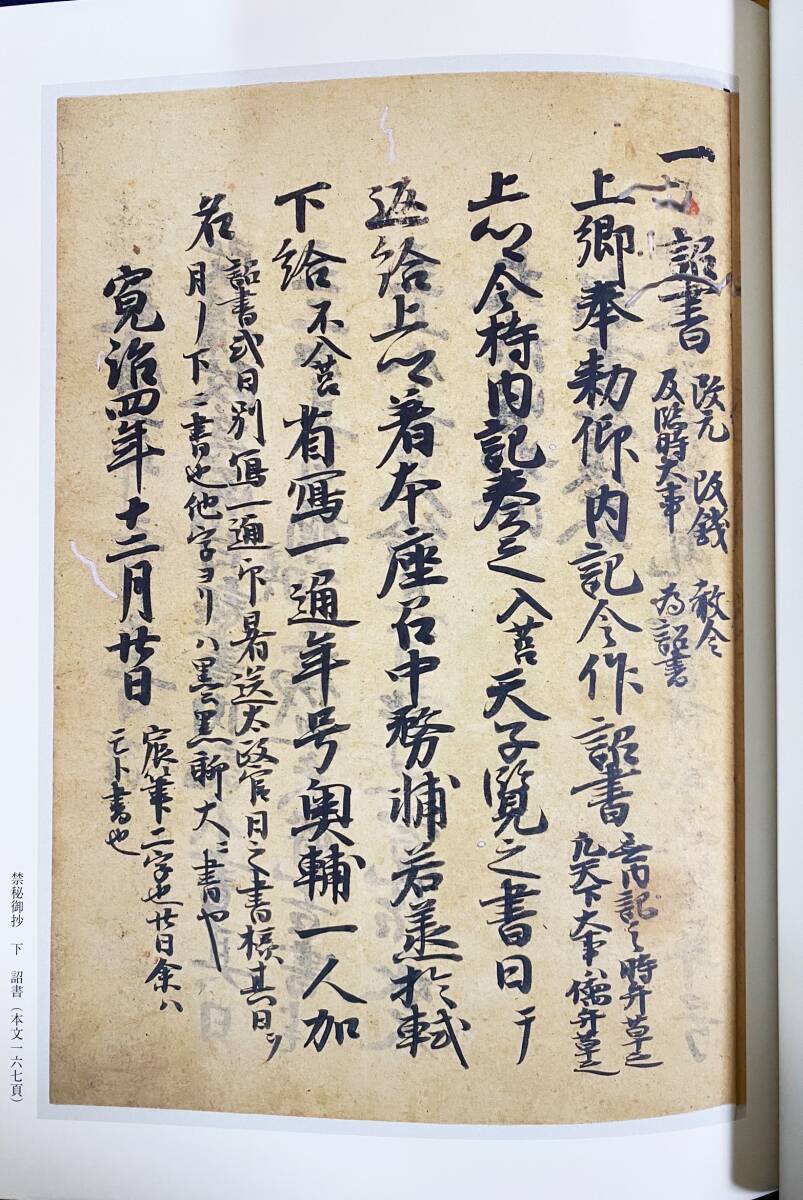 一 詔書 改元 改銭 赦令
及臨時大事 為詔書
上卿奉勅仰内記令作詔書 無内記之時弁草之
凡天下大事儒弁草之
上卿令持内記奏之入筥天子覧之書日テ
返給上卿着本座召中務輔若丞於軾
下給不入筥省写一通年号奥輔一人加
詔書式日別写一通印署送太政官日之書様其日ヲ
若月ノ下ニ書也他字ヨリハ墨黒聊大ニ書也
寛治四年十二月廿日
宸筆二字也廿日余ハ
モト書也
禁秘御抄 下 詔書(本文一六七頁)